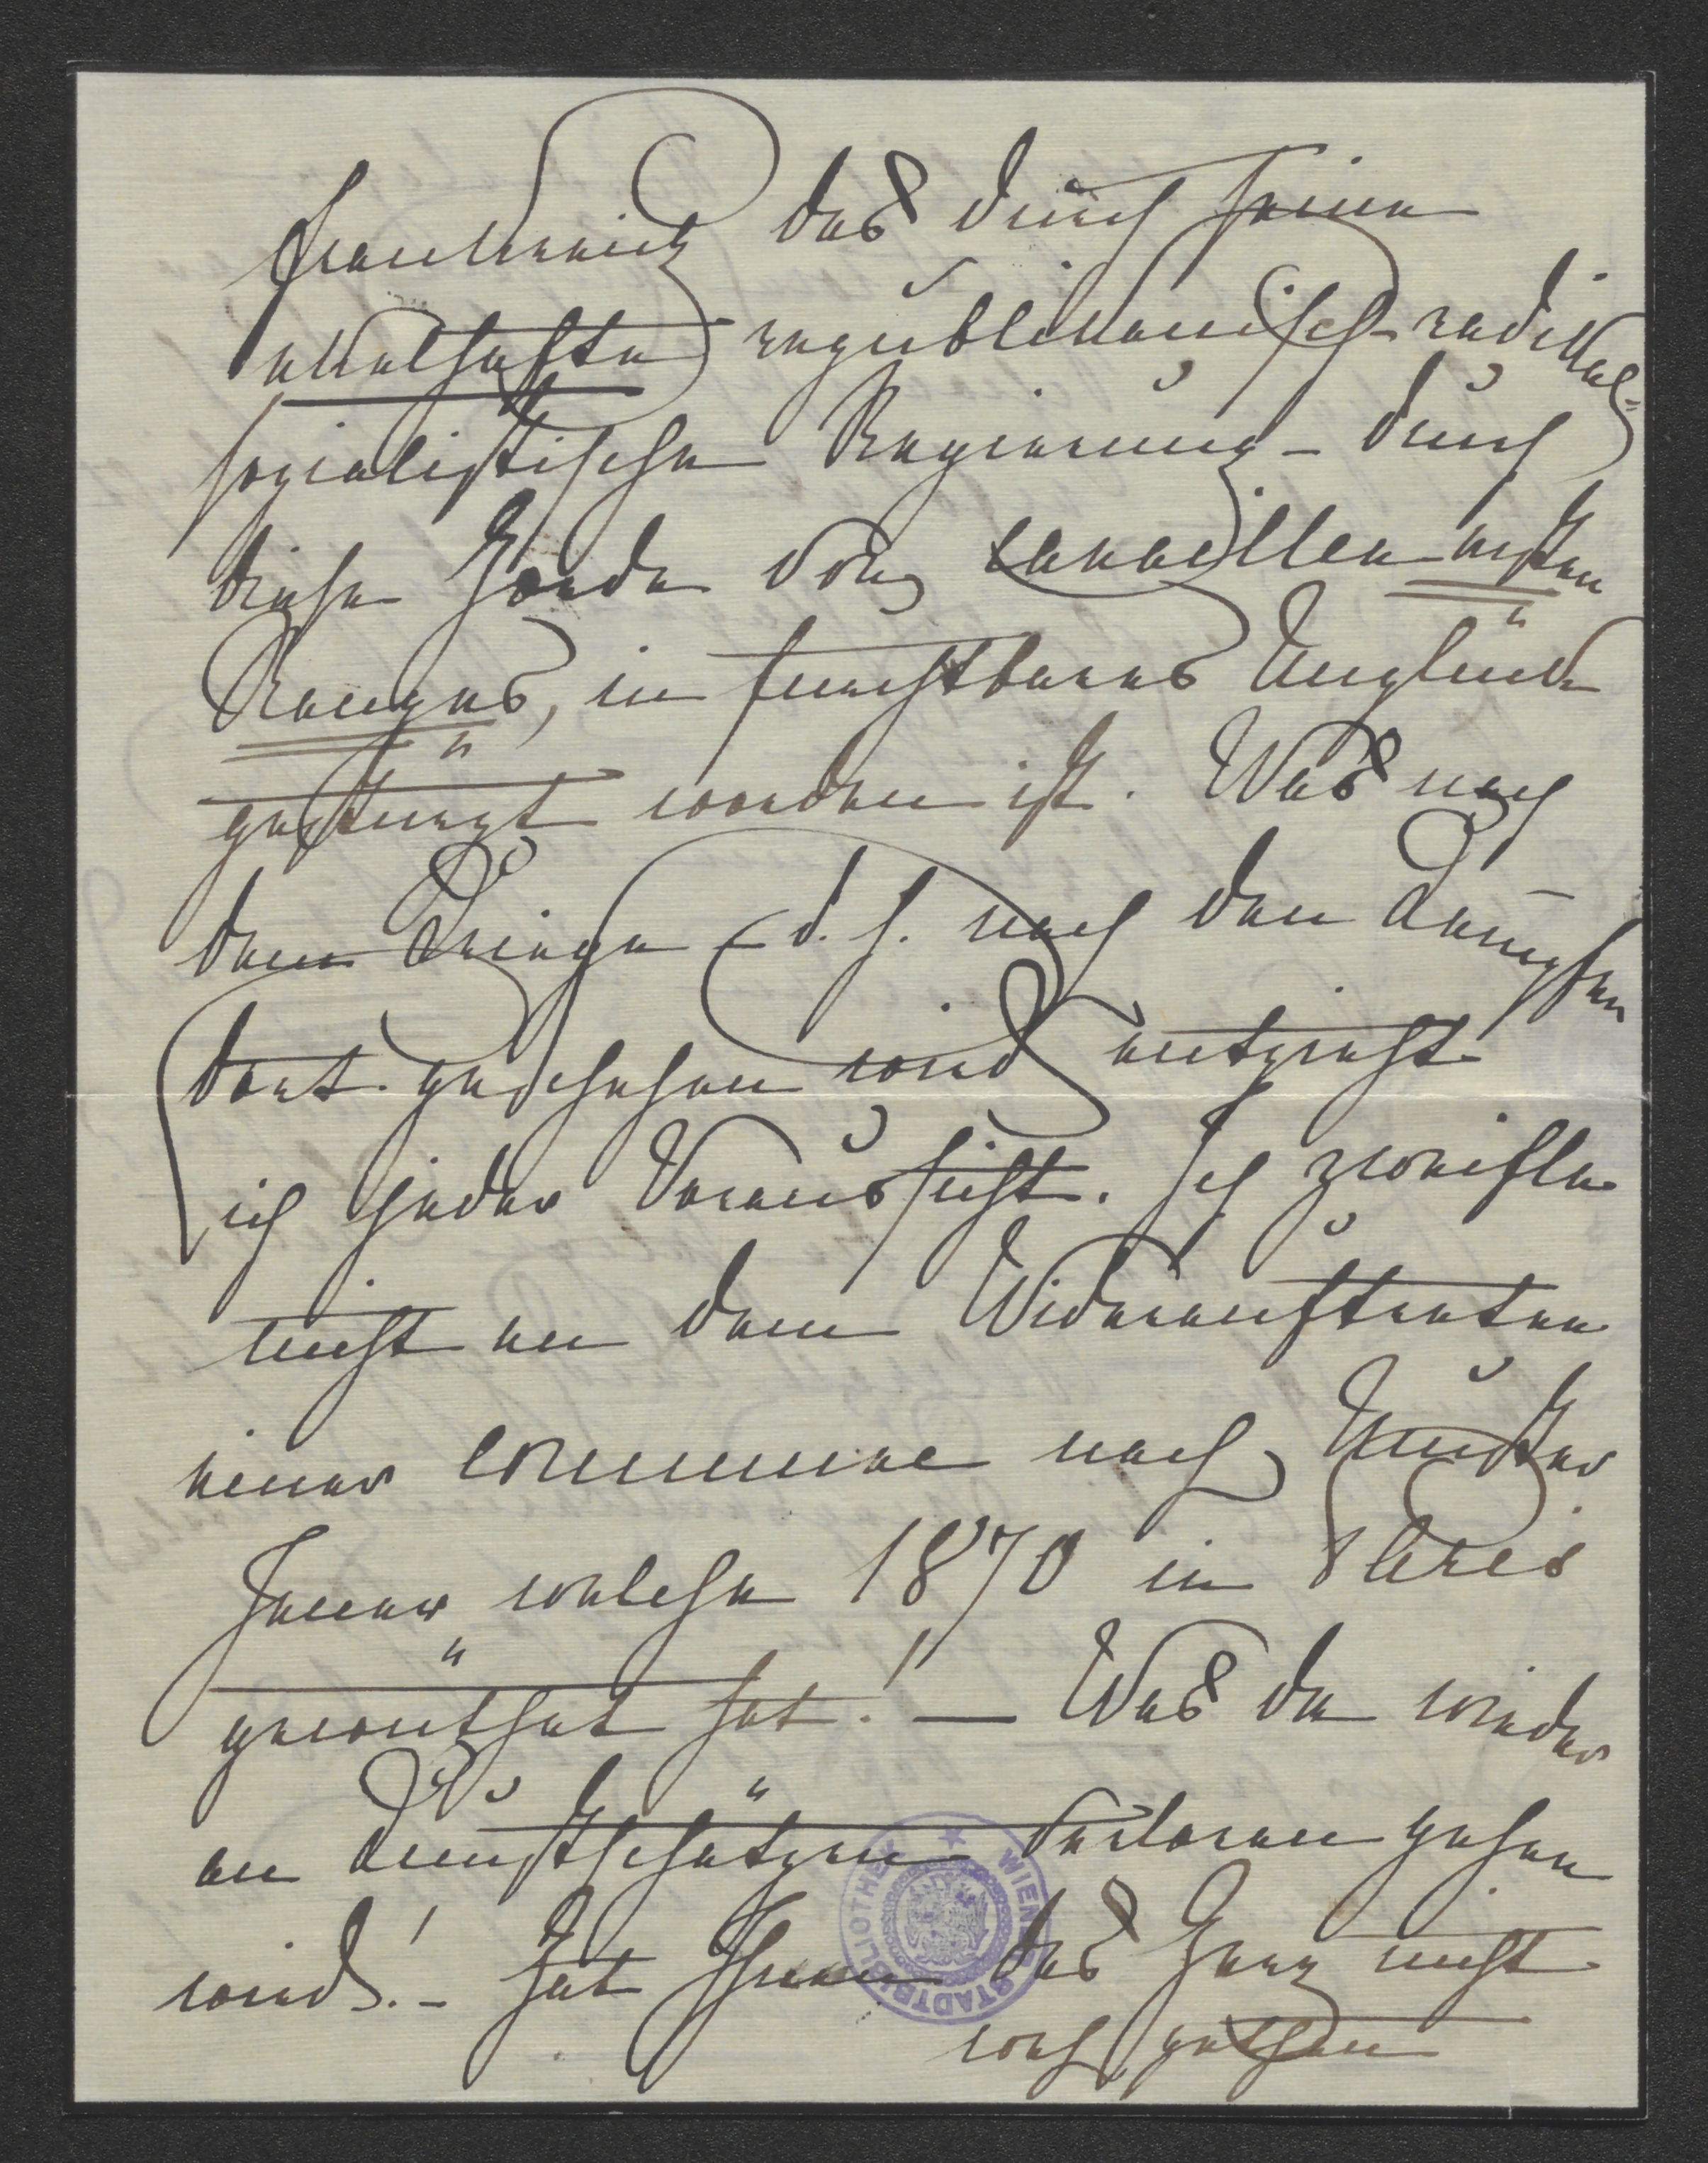 Frankreich das durch seine
ekelhafte republikanisch-radikal-
sozialistische Regierung – durch
diese Horde von Canaillen ersten
Ranges, in furchtbares Unglück
gestürzt worden ist. Was nach
dem Kriege – d. h. nach den Kämpfen
dort geschehen wird entzieht
sich jeder Voraussicht. Ich zweifle
nicht an dem Wiederauftreten
einer Commune nach Muster
Jener welche 1870 in Paris
gewüthet hat! — Was da wieder
an Kunstschätzen verloren gehen
wird! – Hat Ihnen das Herz nicht
weh gethan
WIENER STADTBIBLIOTHEK